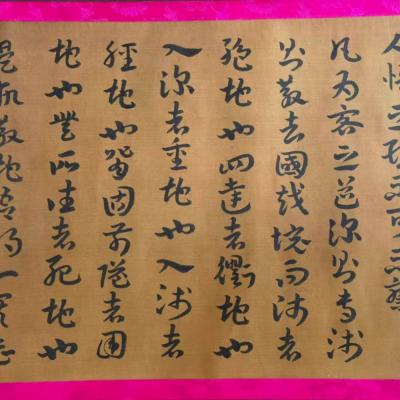 人情之理不可不察
凡为客之道深則專淺
則散去國越境而师者
絕地也四達者衢地也
入深者重地也入淺者
輕地也背固前隘者圍
地也無所往者死地也
是故散地吾將一其志